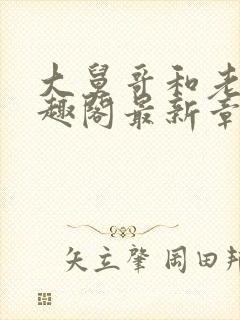 大舅哥和老
趣阁最新章
矢立肇 岡田邦